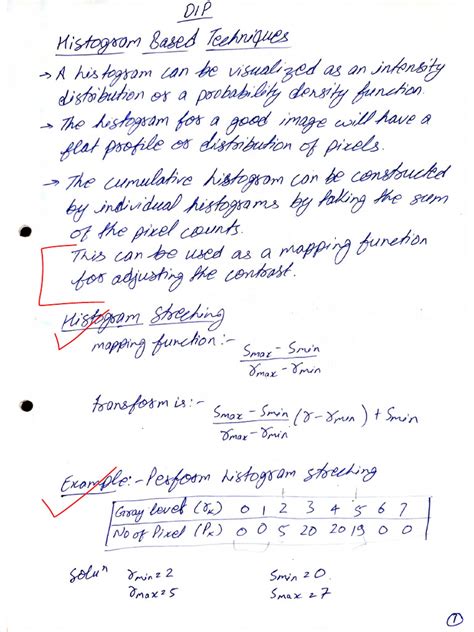 DIP
Histogram Based Techniques
→ A histogram can be visualized as an intensity
distribution or a probability density function.
→ The histogram for a good image will have a
flat profile or distribution of pixels.
→ The cumulative histogram can be constructed
by individual histograms by taking the sum
of the pixel counts.
This can be used as a mapping function
for adjusting the contrast.
Histogram Streching
mapping function:- (Smax - Smin) / (rmax - rmin)
transform is:- (Smax - Smin) / (rmax - rmin) (r - rmin) + Smin
Example:- Perform histogram streching
Gray level (rk) 0 1 2 3 4 5 6 7
No of Pixel (Pk) 0 0 5 20 20 19 0 0
Soluⁿ rmin = 2 Smin = 0
rmax = 5 Smax = 7
1